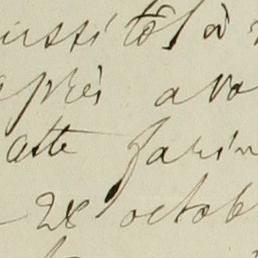 aussitôt à
après avo
cette farin
28 octob